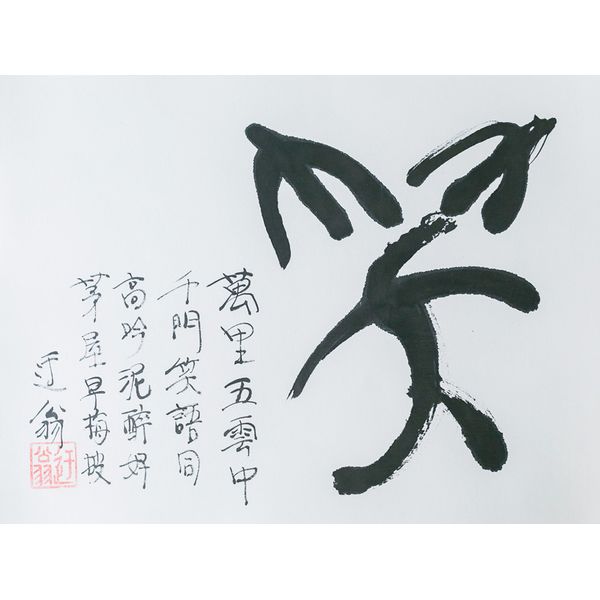 笑
萬里五雲中
千門笑語同
高吟泥醉好
茅屋早梅披
迂翁
迂翁